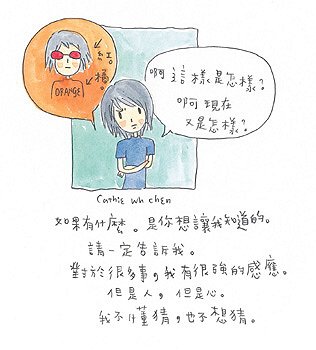 紅。
橘。
ORANGE
啊這樣是怎樣?
啊現在
又是怎樣?
Cathie wh chen
如果有什麼。是你想讓我知道的。
請一定告訴我。
對於很多事,我有很強的感應。
但是人,但是心。
我不懂猜,也不想猜。